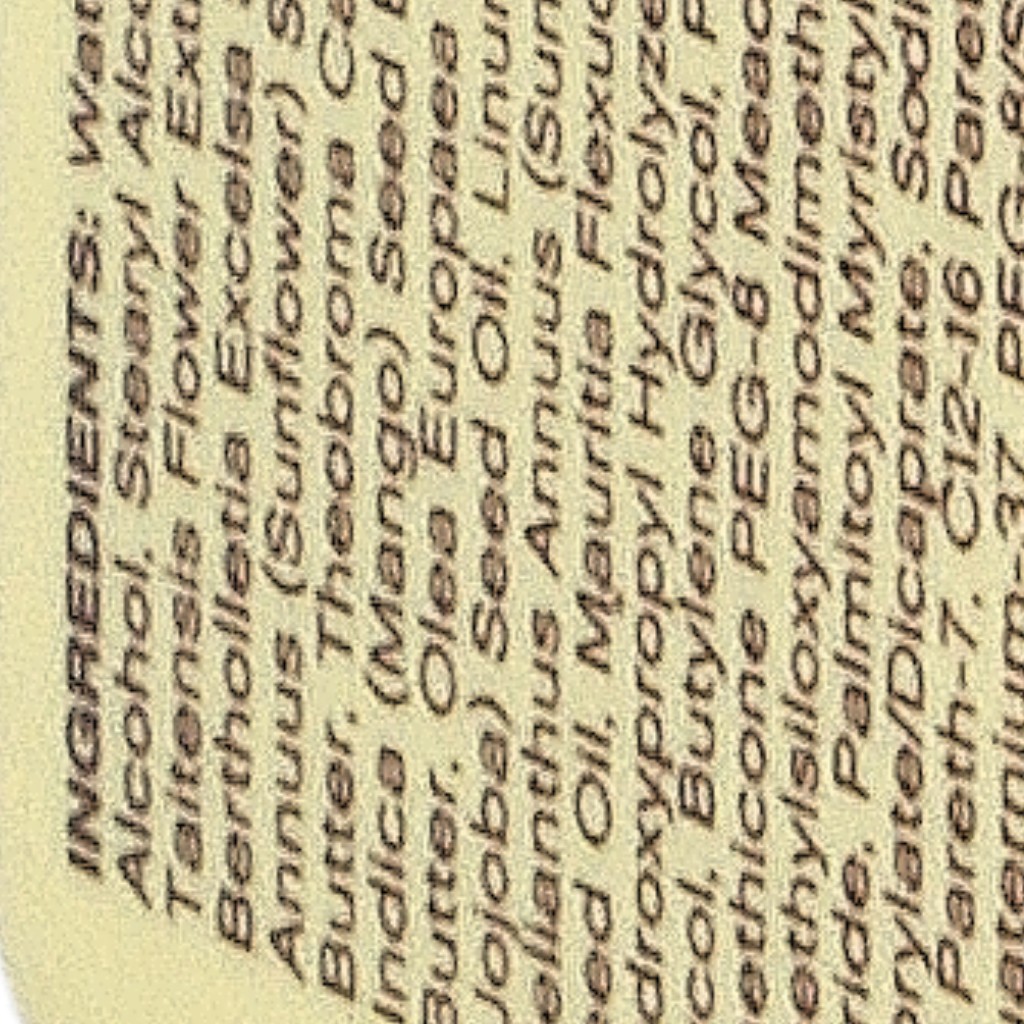 INGREDIENTS: Wat
Alcohol, Stearyl Alco
Taitensis Flower Ext
Bertholletia Excelsa
Annuus (Sunflower) S
Butter, Theobroma Ca
Indica (Mango) Seed B
Butter, Olea Europaea
Jojoba) Seed Oil, Linu
elianthus Annuus (Sun
eed Oil, Mauritia Flexuo
droxypropyl Hydrolyze
col, Butylene Glycol, P
ethicone PEG-8 Mead
ethylsiloxyamodimeth
ride, Palmitoyl Myristyl
rylate/Dicaprate, Sodi
Pareth-7, C12-16 Pare
aternium-37, PEG-8/S